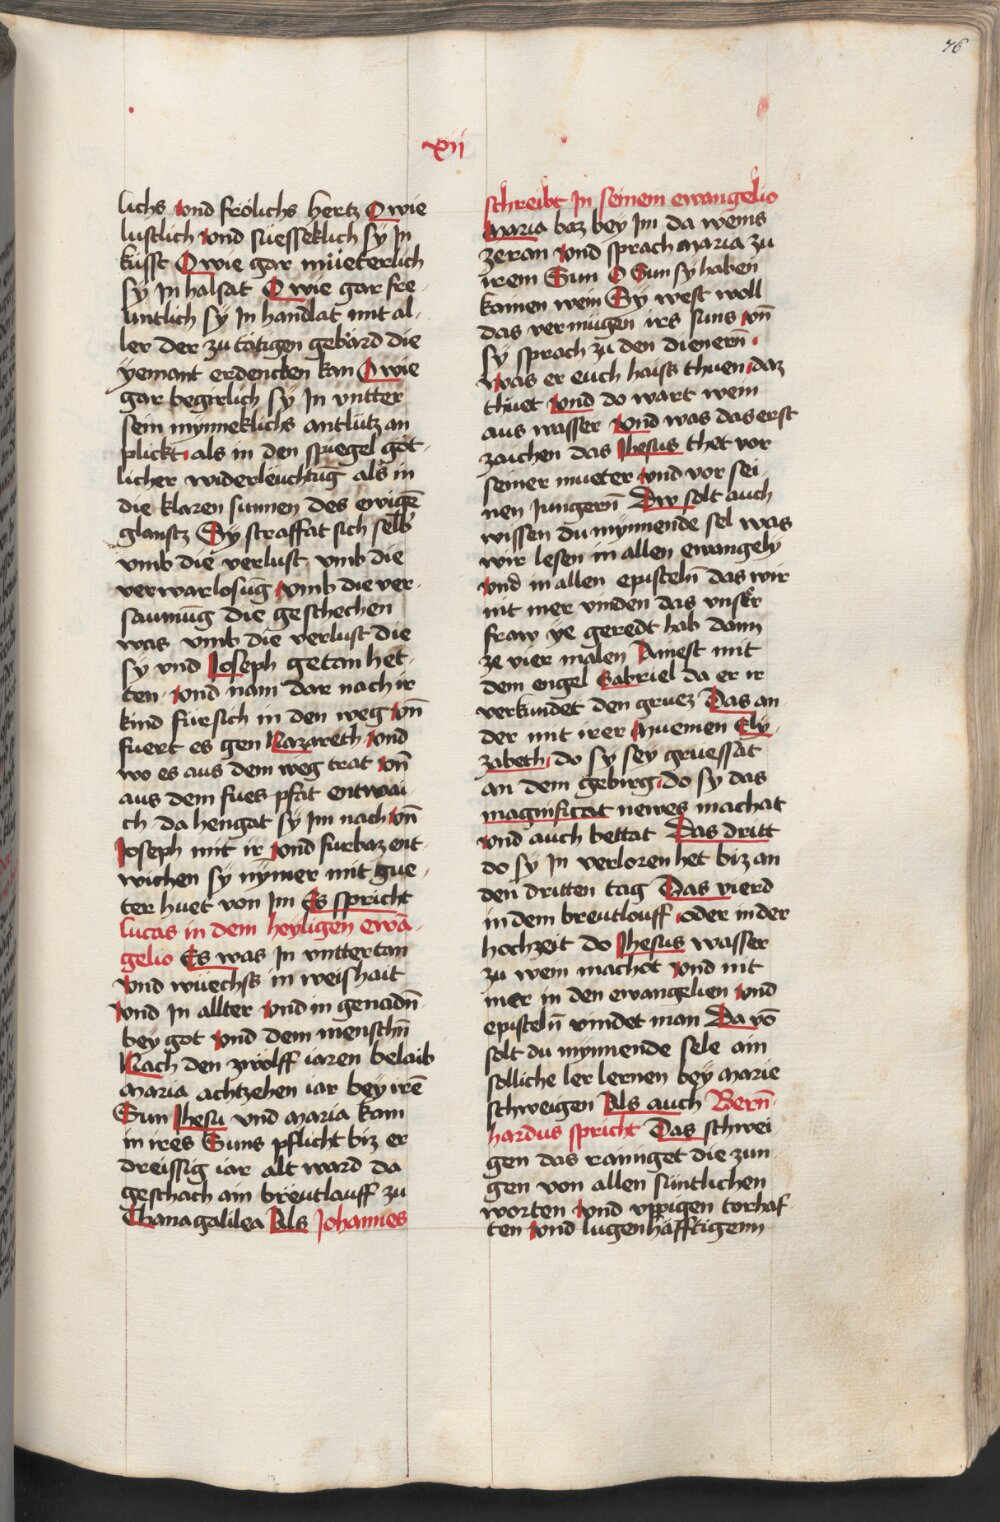 76
xij
lichs vnd frölichs hertz O wie
lustlich vnd süesseklich sy Jn
kusst O wie gar müeterlich
sy Jn halsat O wie gar fre
untlich sy Jn handlat mit al-
ler der zu tätigen gebärd die
yemant erdencken kan O wie
gar begirlich sy Jn vntter
sein mynneklichs antlütz an
plickt als in den spiegel göt-
licher widerleuchtūg als in
die klaren sunnen des ewigē
glanstz Sy straffat sich selb
vmb die verlust vmb die
verwarlosūg vmb die ver-
saumūg die geschechen
was vmb die verlust die
sy vnd Joseph getan het-
ten vnd nam dar nach ir
kind für sich in den weg vn̄
fuert es gen Nazareth vnd
wo es aus dem weg trat vn̄
aus dem fues pfat entwai
ch da hengat sy Jm nach vn̄
Joseph mit ir vnd furbaz ent-
wichen sy nymer mit gue-
ter huet von Jm Es spricht
lucas in dem heyligen ewā-
gelio Es was Jn vnttertan
vnd wüechss in weishait
vnd Jn allter vnd in genadn̄
bey got vnd dem menschn̄
Nach den zwölff iaren belaib
Maria achtzehen iar bey irē
Sun Jhesu vnd Maria kam
in ires Suns pflicht biz er
dreissig iar alt ward da
geschach ain breutlauff zu
Chanagalilea Als Johannes
schreibt Jn seinem ewangelio
Maria baz bey Jm da weins
zeran vnd sprach Maria zu
irem Sun O Sun sy haben
kainen wein Sy west woll
das vermügen irs suns vn̄
sy sprach zu den dienern̄
was er euch haiss thuen daz
thuet vnd do wart wein
aus wasser vnd was das erst
zaichen das Jhesus thet vor
seiner mueter vnd vor sei
nen Jungern̄ Dw solt auch
wissen du mynnende sel was
wir lesen in allen ewangely
vnd in allen episteln̄ das wir
nit mer vinden das vnser
fraw ye geredt hab dann
ze vier malen Ainest mit
dem engel Gabriel da er ir
verkundet den gruez Das an
der mit irer Muemen Ely-
zabeth do sy sey gruessat
an dem gebirg do sy das
magnificat newes machat
vnd auch bettat Das dritt
do sy Jn verloren het biz an
den dritten tag Das vierd
in dem breutlouff oder in der
hochzeit do Jhesus wasser
zu wein machot vnd nit
mer in den ewangelien vnd
episteln̄ vindet man Da vō
solt du mynnende sele ain
solliche ler lernen bey Marie
schweigen Als auch Bern̄-
hardus spricht Das schwei-
gen das rannget die zun
gen von allen süntlichen
worten vnd vppigen torhaf
ten vnd lugenhäfftigenn